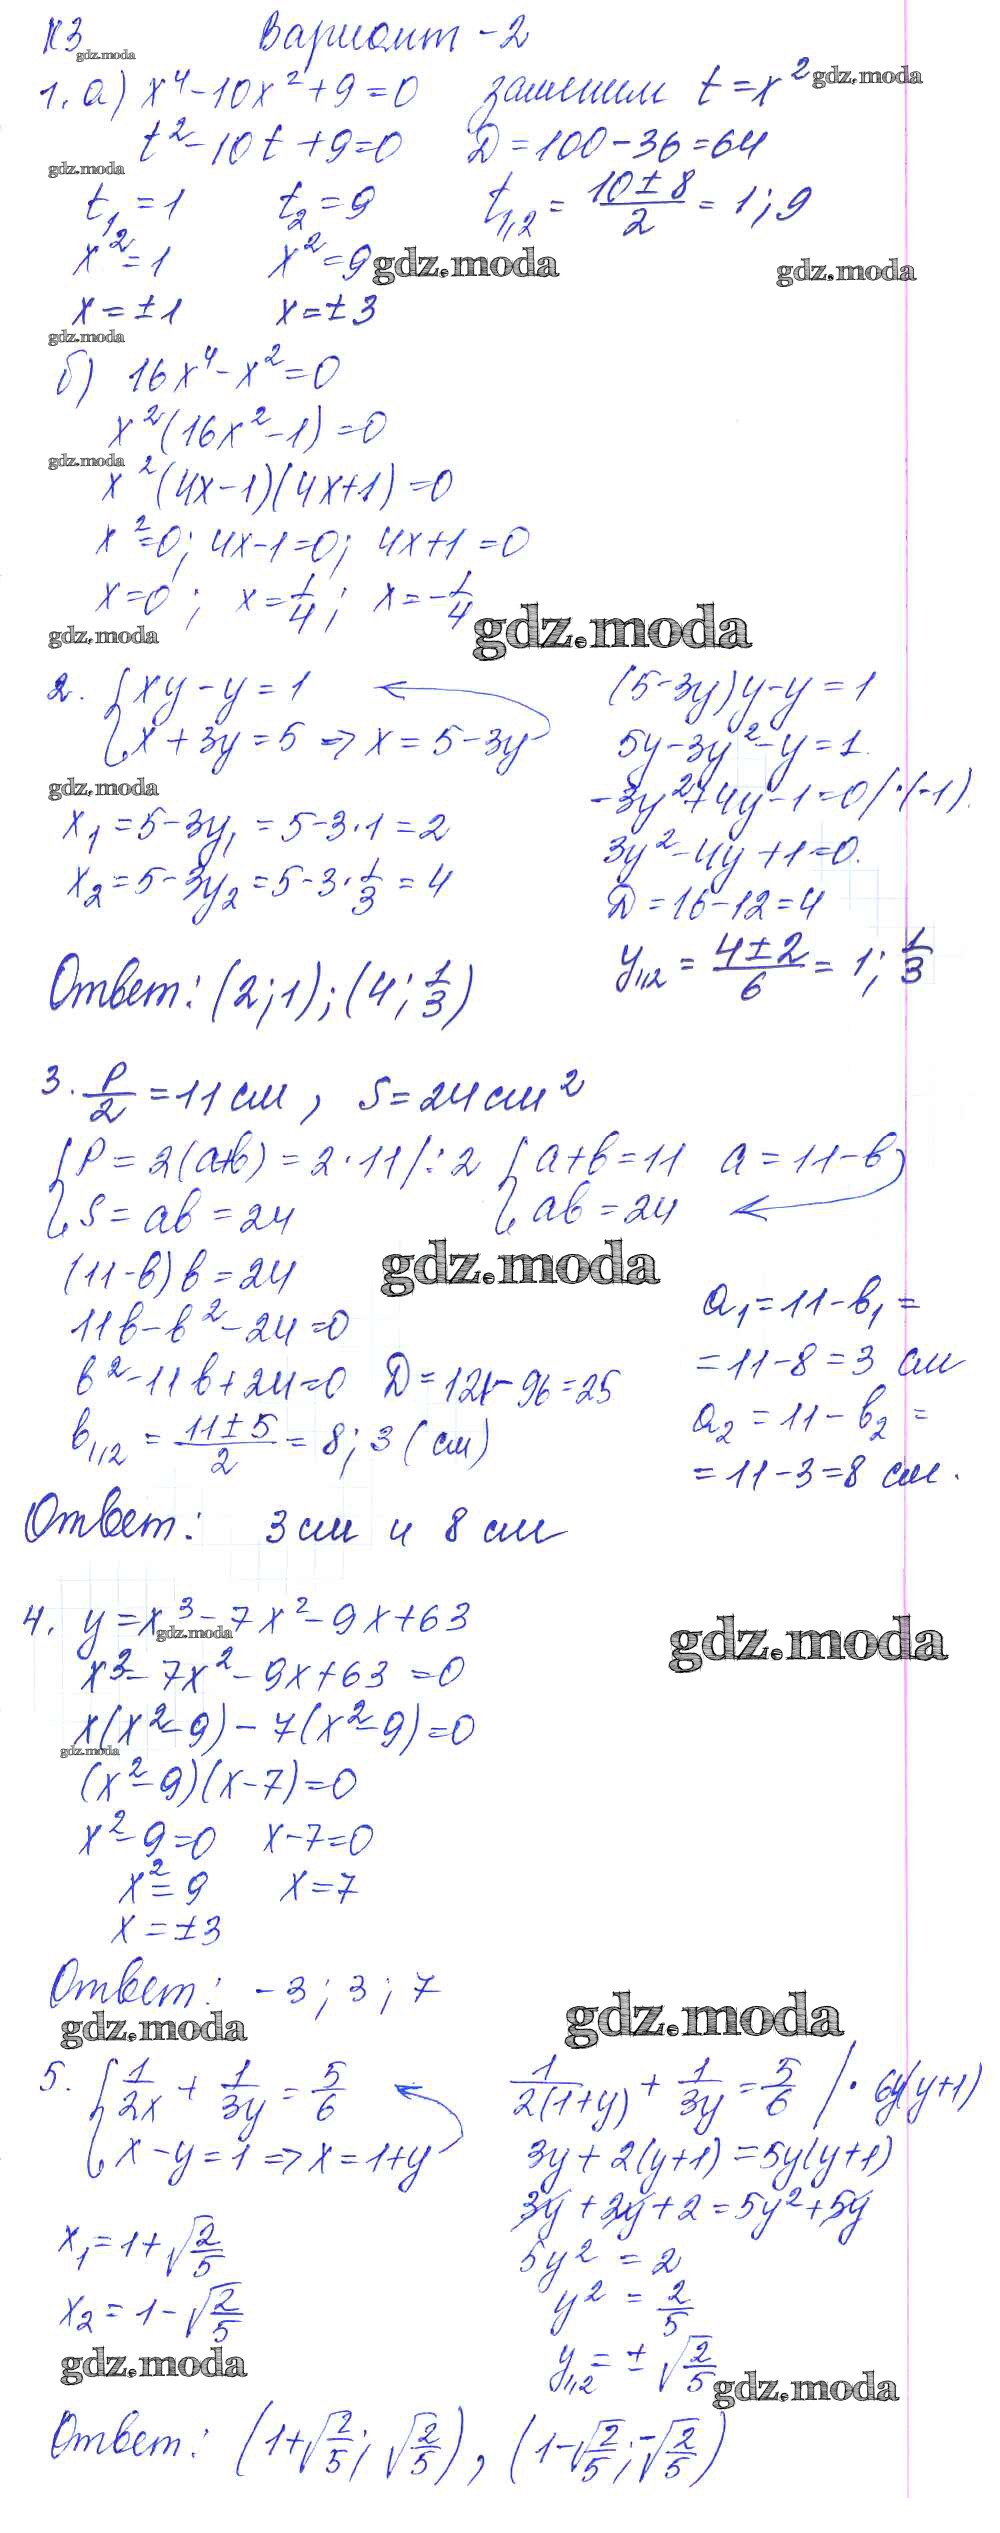 К3 Вариант - 2
gdz.moda
1. а) x⁴ - 10x² + 9 = 0 заменим t = x²
gdz.moda
t² - 10t + 9 = 0 D = 100 - 36 = 64
gdz.moda
t₁ = 1 t₂ = 9 t₁,₂ = (10 ± 8)/2 = 1; 9
x² = 1 x² = 9
gdz.moda gdz.moda
x = ±1 x = ±3
gdz.moda
б) 16x⁴ - x² = 0
x²(16x² - 1) = 0
gdz.moda
x²(4x - 1)(4x + 1) = 0
x² = 0; 4x - 1 = 0; 4x + 1 = 0
x = 0; x = 1/4; x = -1/4
gdz.moda gdz.moda
2. { xy - y = 1 (5 - 3y)y - y = 1
x + 3y = 5 => x = 5 - 3y 5y - 3y² - y = 1.
gdz.moda
-3y² + 4y - 1 = 0 / · (-1).
x₁ = 5 - 3y₁ = 5 - 3 · 1 = 2 3y² - 4y + 1 = 0.
x₂ = 5 - 3y₂ = 5 - 3 · 1/3 = 4 D = 16 - 12 = 4
y₁,₂ = (4 ± 2)/6 = 1; 1/3
Ответ: (2; 1); (4; 1/3)
3. P/2 = 11 см, S = 24 см²
{ P = 2(a+b) = 2 · 11 / : 2 { a + b = 11 a = 11 - b
S = ab = 24 ab = 24
gdz.moda
(11 - b) b = 24
11b - b² - 24 = 0 a₁ = 11 - b₁ =
= 11 - 8 = 3 см
b² - 11b + 24 = 0 D = 121 - 96 = 25
a₂ = 11 - b₂ =
b₁,₂ = (11 ± 5)/2 = 8; 3 (см)
= 11 - 3 = 8 см.
Ответ: 3 см и 8 см
4. y = x³ - 7x² - 9x + 63
gdz.moda gdz.moda
x³ - 7x² - 9x + 63 = 0
x(x² - 9) - 7(x² - 9) = 0
gdz.moda
(x² - 9)(x - 7) = 0
x² - 9 = 0 x - 7 = 0
x² = 9 x = 7
x = ±3
Ответ: -3; 3; 7
gdz.moda gdz.moda
5. { 1/2x + 1/3y = 5/6 1/2(1+y) + 1/3y = 5/6 / · 6y(y+1)
x - y = 1 => x = 1 + y 3y + 2(y+1) = 5y(y+1)
3y + 2y + 2 = 5y² + 5y
x₁ = 1 + √2/5 5y² = 2
x₂ = 1 - √2/5 y² = 2/5
gdz.moda
y₁,₂ = ± √2/5
gdz.moda
Ответ: (1+√2/5; √2/5), (1-√2/5; -√2/5)